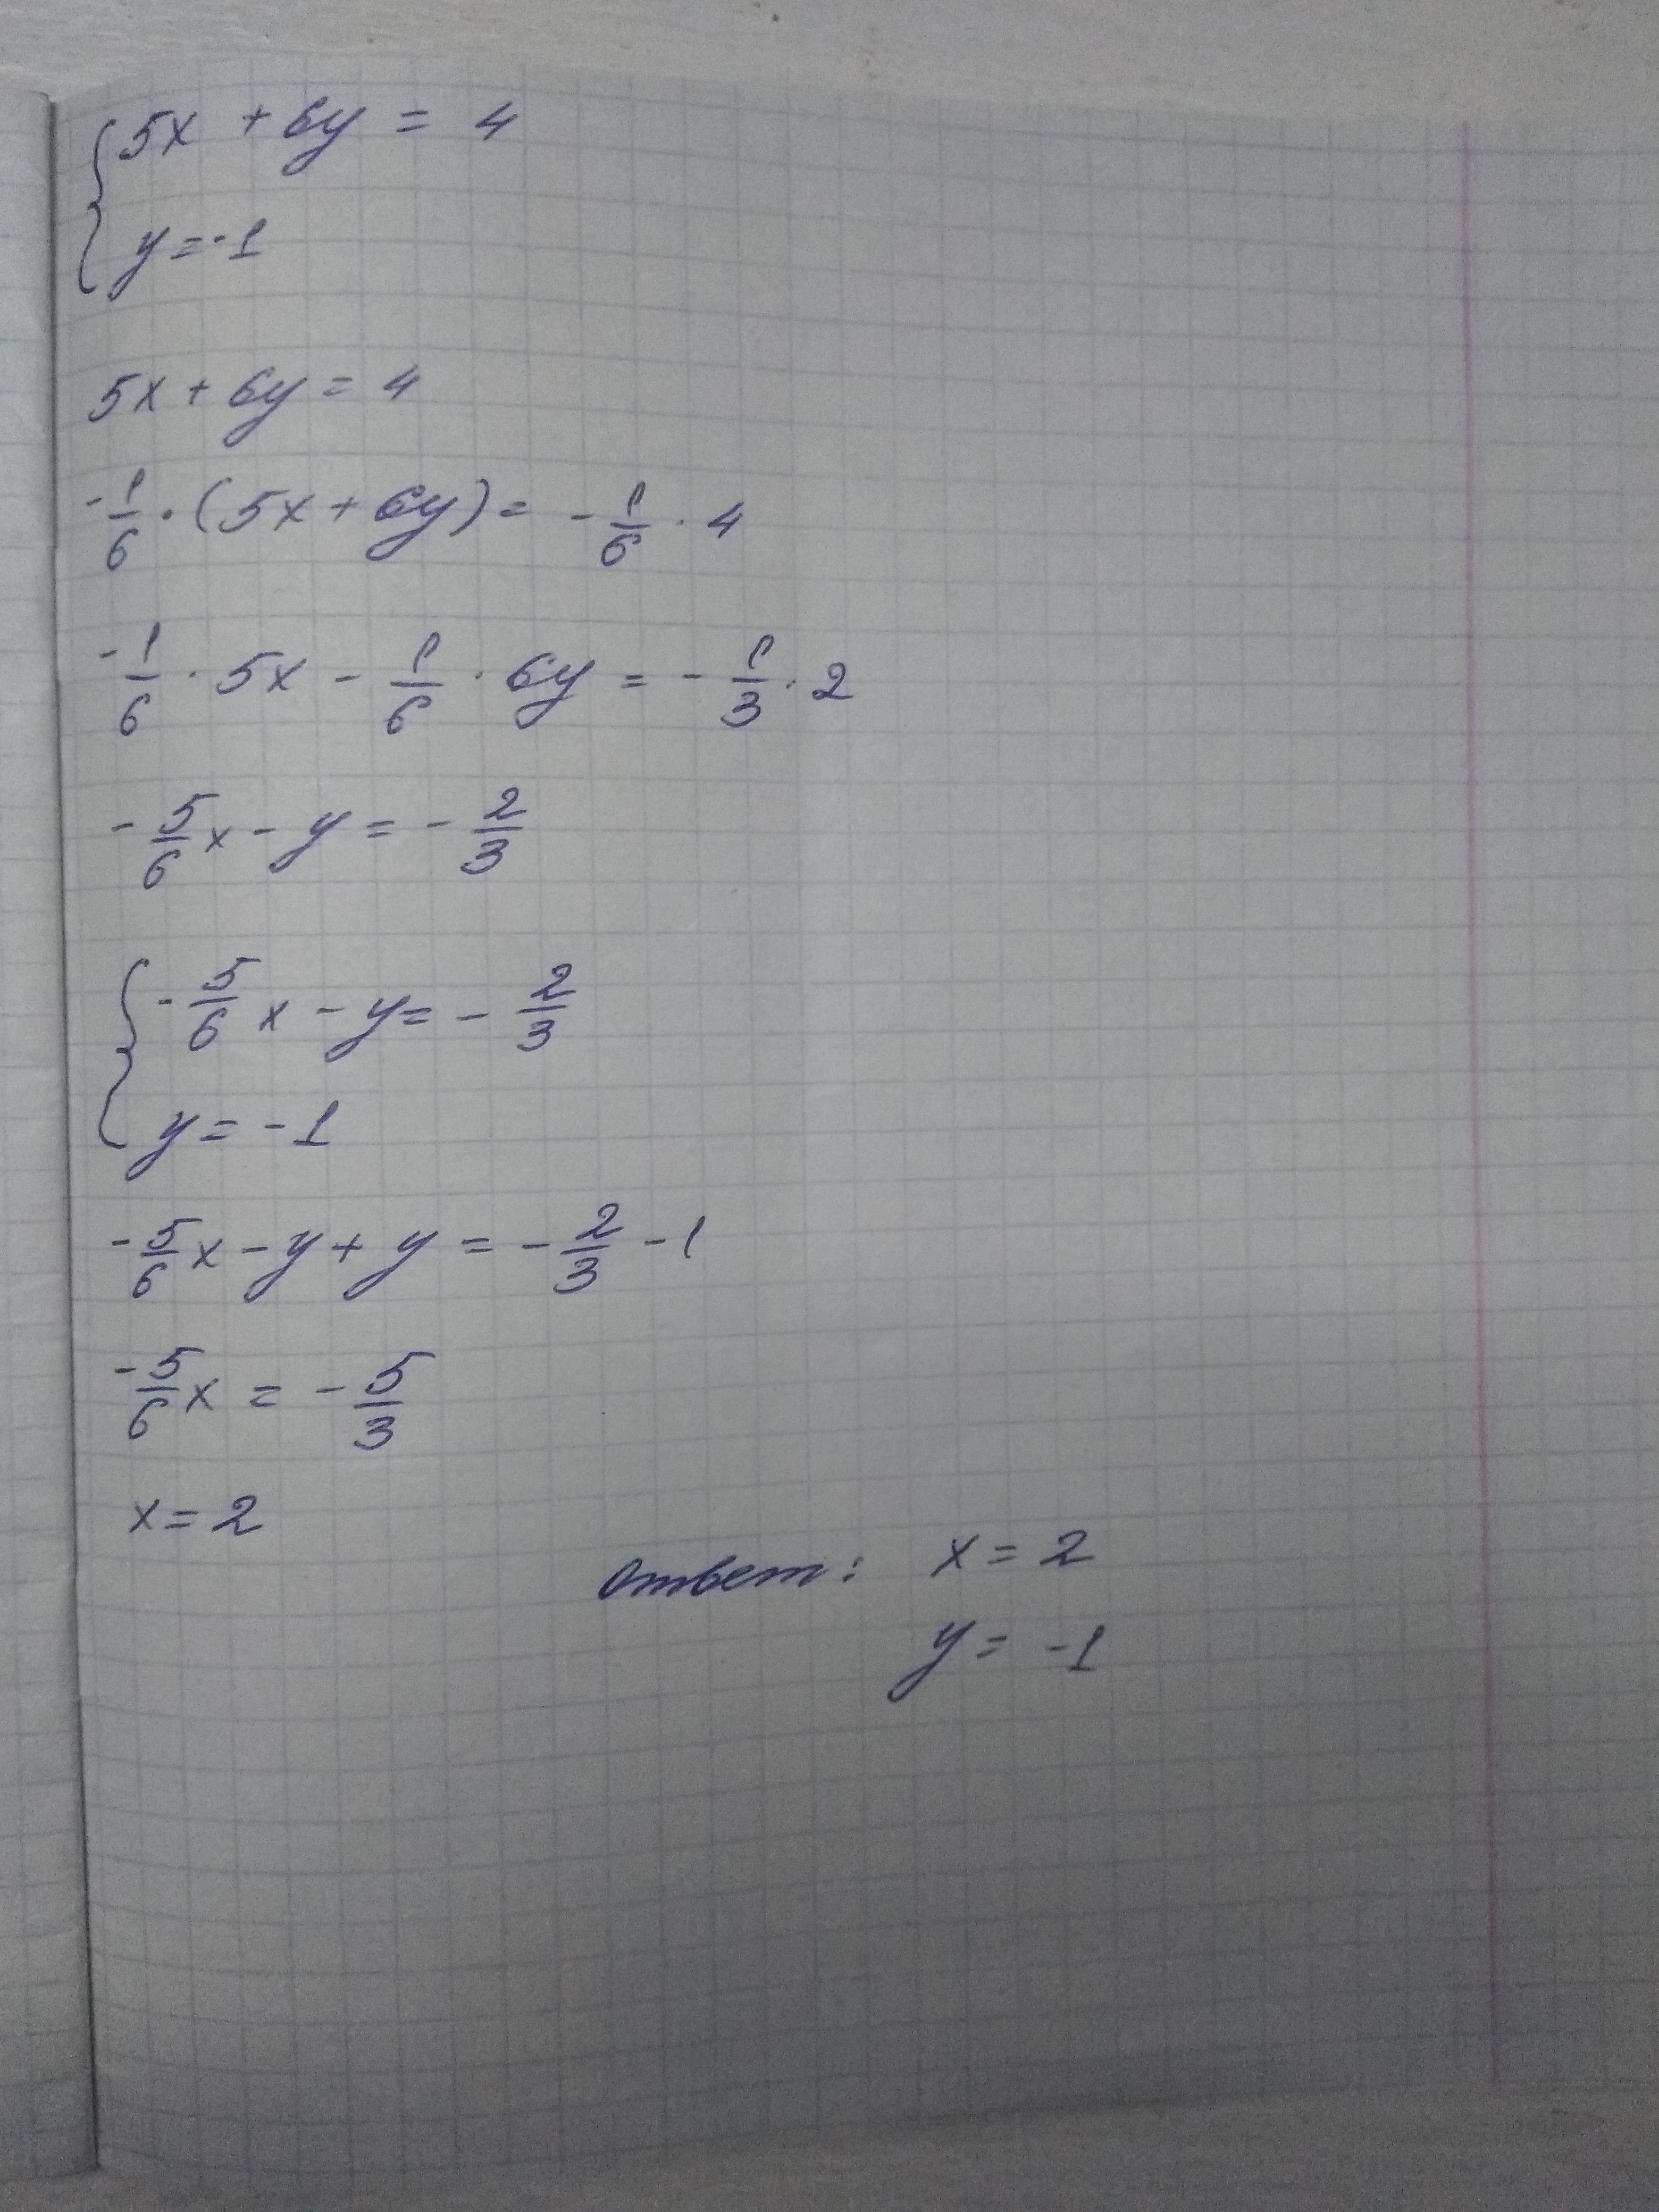 {5x + 6y = 4
{y = -1
5x + 6y = 4
-1/6 · (5x + 6y) = -1/6 · 4
-1/6 · 5x - 1/6 · 6y = -1/3 · 2
-5/6 x - y = -2/3
{-5/6 x - y = -2/3
{y = -1
-5/6 x - y + y = -2/3 - 1
-5/6 x = -5/3
x = 2
Ответ: x = 2
y = -1